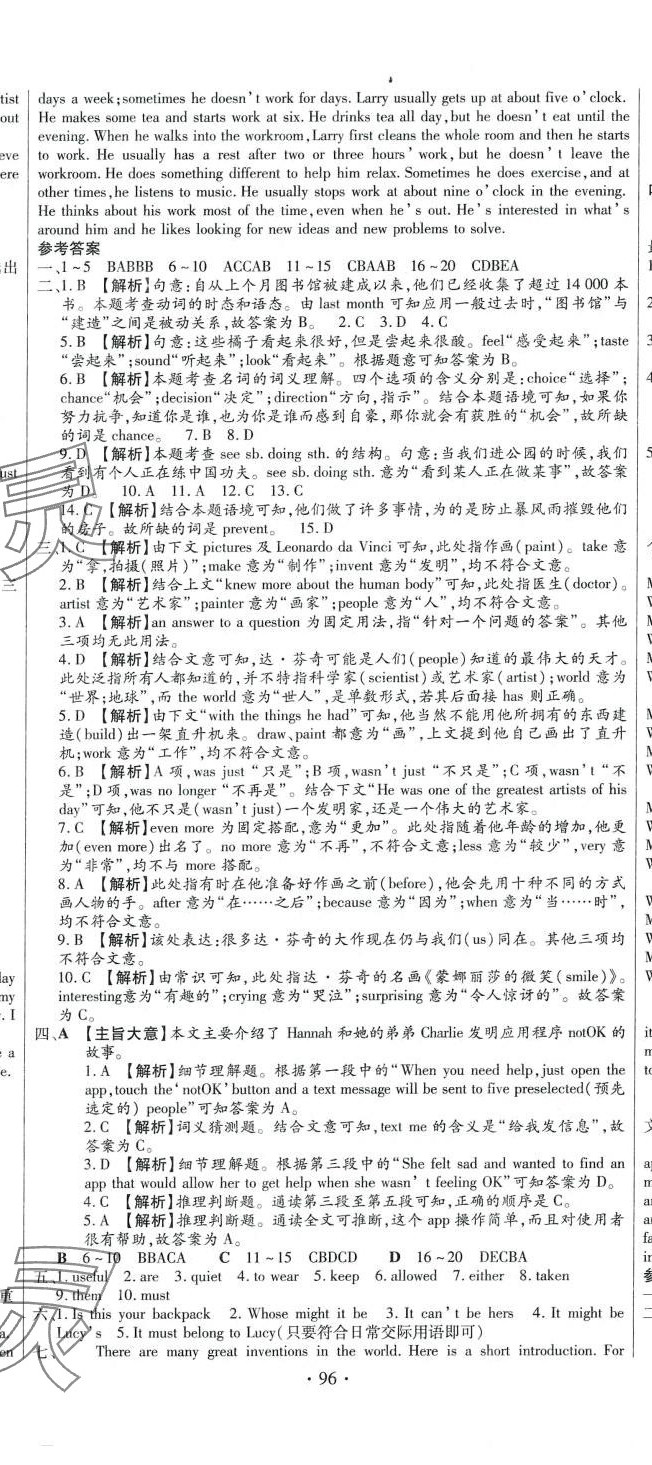 days a week;sometimes he doesn't work for days. Larry usually gets up at about five o'clock.
He makes some tea and starts work at six. He drinks tea all day,but he doesn't eat until the
evening. When he walks into the workroom,Larry first cleans the whole room and then he starts
to work. He usually has a rest after two or three hours' work,but he doesn't leave the
workroom. He does something different to help him relax. Sometimes he does exercise,and at
other times,he listens to music. He usually stops work at about nine o'clock in the evening.
He thinks about his work most of the time,even when he's out. He's interested in what's
around him and he likes looking for new ideas and new problems to solve.
参考答案
一、1~5 BABBB 6~10 ACCAB 11~15 CBAAB 16~20 CDBEA
二、1. B 【解析】句意:自从上个月图书馆被建成以来,他们已经收集了超过 14 000 本
书。本题考查动词的时态和语态。由 last month 可知应用一般过去时,“图书馆”与
“建造”之间是被动关系,故答案为 B。 2. C 3. D 4. C
5. B 【解析】句意:这些橘子看起来很好,但是尝起来很酸。feel“感受起来”;taste
“尝起来”;sound“听起来”;look“看起来”。根据题意可知答案为 B。
6. B 【解析】本题考查名词的词义理解。四个选项的含义分别是:choice“选择”;
chance“机会”;decision“决定”;direction“方向,指示”。结合本题语境可知,如果你
努力抗争,知道你是谁,也为你是谁而感到自豪,那你就会有获胜的“机会”,故所缺
的词是 chance。 7. B 8. D
9. D 【解析】本题考查 see sb. doing sth. 的结构。句意:当我们进公园的时候,我们
看到有个人正在练中国功夫。see sb. doing sth. 意为“看到某人正在做某事”,故答案
为 D。 10. A 11. A 12. C 13. C
14. C 【解析】结合本题语境可知,他们做了许多事情,为的是防止暴风雨摧毁他们
的房子。故所缺的词是 prevent。 15. D
三、1. C 【解析】由下文 pictures 及 Leonardo da Vinci 可知,此处指作画(paint)。take 意
为“拿,拍摄(照片)”;make 意为“制作”;invent 意为“发明”,均不符合文意。
2. B 【解析】结合上文“knew more about the human body”可知,此处指医生(doctor)。
artist 意为“艺术家”;painter 意为“画家”;people 意为“人”,均不符合文意。
3. A 【解析】an answer to a question 为固定用法,指“针对一个问题的答案”。其他
三项均无此用法。
4. D 【解析】结合文意可知,达·芬奇可能是人们(people)知道的最伟大的天才。
此处泛指所有人都知道的,并不特指科学家(scientist)或艺术家(artist);world 意为
“世界;地球”,而 the world 意为“世人”,是单数形式,若其后面接 has 则正确。
5. D 【解析】由下文“with the things he had”可知,他当然不能用他所拥有的东西建
造(build)出一架直升机来。draw、paint 都意为“画”,上文提到他自己画出了直升
机;work 意为“工作”,均不符合文意。
6. B 【解析】A 项,was just “只是”;B 项,wasn't just “不只是”;C 项,wasn't “不
是”;D 项,was no longer “不再是”。结合下文“He was one of the greatest artists of his
day”可知,他不只是(wasn't just)一个发明家,还是一个伟大的艺术家。
7. C 【解析】even more 为固定搭配,意为“更加”。此处指随着他年龄的增加,他更
加(even more)出名了。no more 意为“不再”,不符合文意;less 意为“较少”,very 意
为“非常”,均不与 more 搭配。
8. A 【解析】此处指有时在他准备好作画之前(before),他会先用十种不同的方式
画人物的手。after 意为“在……之后”;because 意为“因为”;when 意为“当……时”,
均不符合文意。
9. B 【解析】该处表达:很多达·芬奇的大作现在仍与我们(us)同在。其他三项均
不符合文意。
10. C 【解析】由常识可知,此处指达·芬奇的名画《蒙娜丽莎的微笑(smile)》。
interesting意为“有趣的”;crying 意为“哭泣”;surprising 意为“令人惊讶的”。故答案
为 C。
四、A 【主旨大意】本文主要介绍了 Hannah 和她的弟弟 Charlie 发明应用程序 notOK 的
故事。
1. A 【解析】细节理解题。根据第一段中的“When you need help,just open the
app,touch the‘notOK’button and a text message will be sent to five preselected(预先
选定的) people”可知答案为 A。
2. C 【解析】词义猜测题。结合文意可知,text me 的含义是“给我发信息”,故
答案为 C。
3. D 【解析】细节理解题。根据第三段中的“She felt sad and wanted to find an
app that would allow her to get help when she wasn't feeling OK”可知答案为 D。
4. C 【解析】推理判断题。通读第三段至第五段可知,正确的顺序是 C。
5. A 【解析】推理判断题。通读全文可推断,这个 app 操作简单,而且对使用者
很有帮助,故答案为 A。
B 6~10 BBACA C 11~15 CBDCD D 16~20 DECBA
五、1. useful 2. are 3. quiet 4. to wear 5. keep 6. allowed 7. either 8. taken
9. them 10. must
六、1. Is this your backpack 2. Whose might it be 3. It can't be hers 4. It might be
Lucy's 5. It must belong to Lucy(只要符合日常交际用语即可)
七、 There are many great inventions in the world. Here is a short introduction. For
· 96 ·